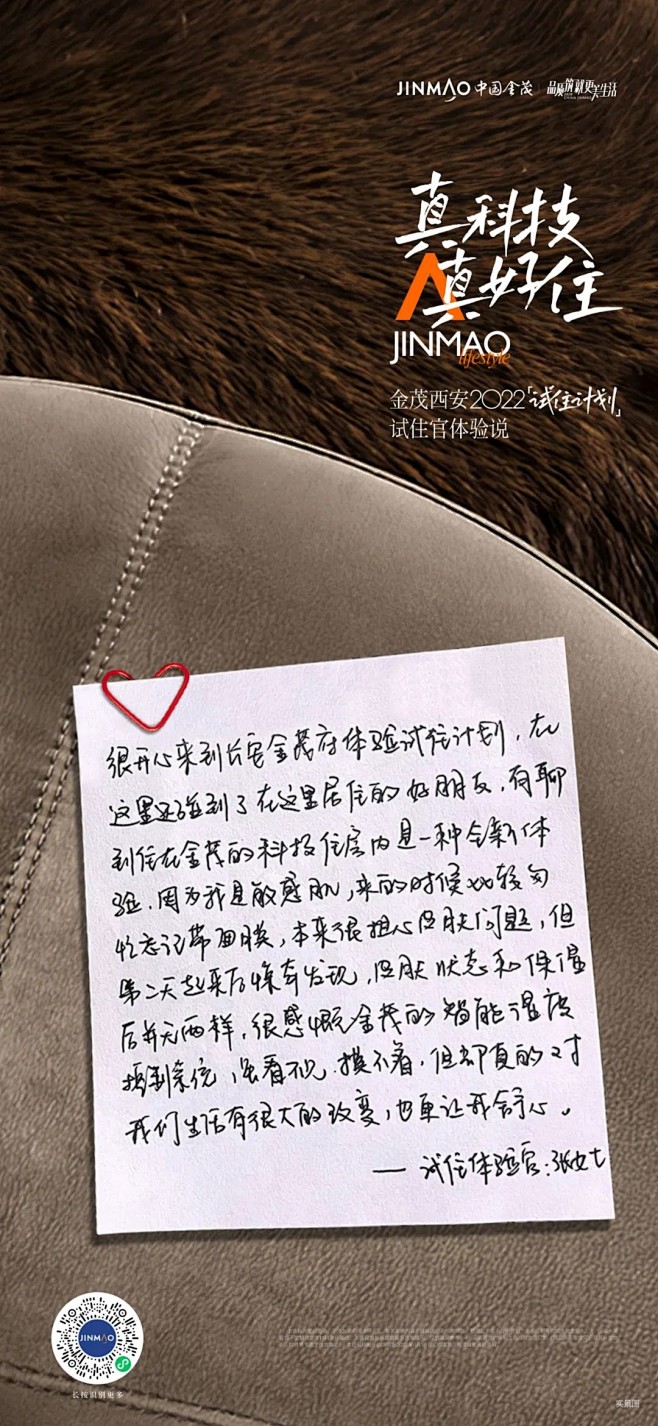 JINMAO中国金茂 品质筑就更美生活
真科技
真好住
JINMAO
lifestyle
金茂西安2022「试住计划」
试住官体验说
很开心来到长安金茂府体验试住计划，在
这里还碰到了在这里居住的好朋友，有聊
到住在金茂的科技住房内是一种全新体
验，因为我是敏感肌，来的时候比较匆
忙忘记带面膜，本来很担心皮肤问题，但
第二天起来后惊奇发现，皮肤状态和保湿
后并无两样，很感慨金茂的智能湿度
控制系统，虽看不见、摸不着，但却真的对
我们生活有很大的改变，也更让我舒心。
— 试住体验官：张女士
JINMAO
长按识别更多
实景图